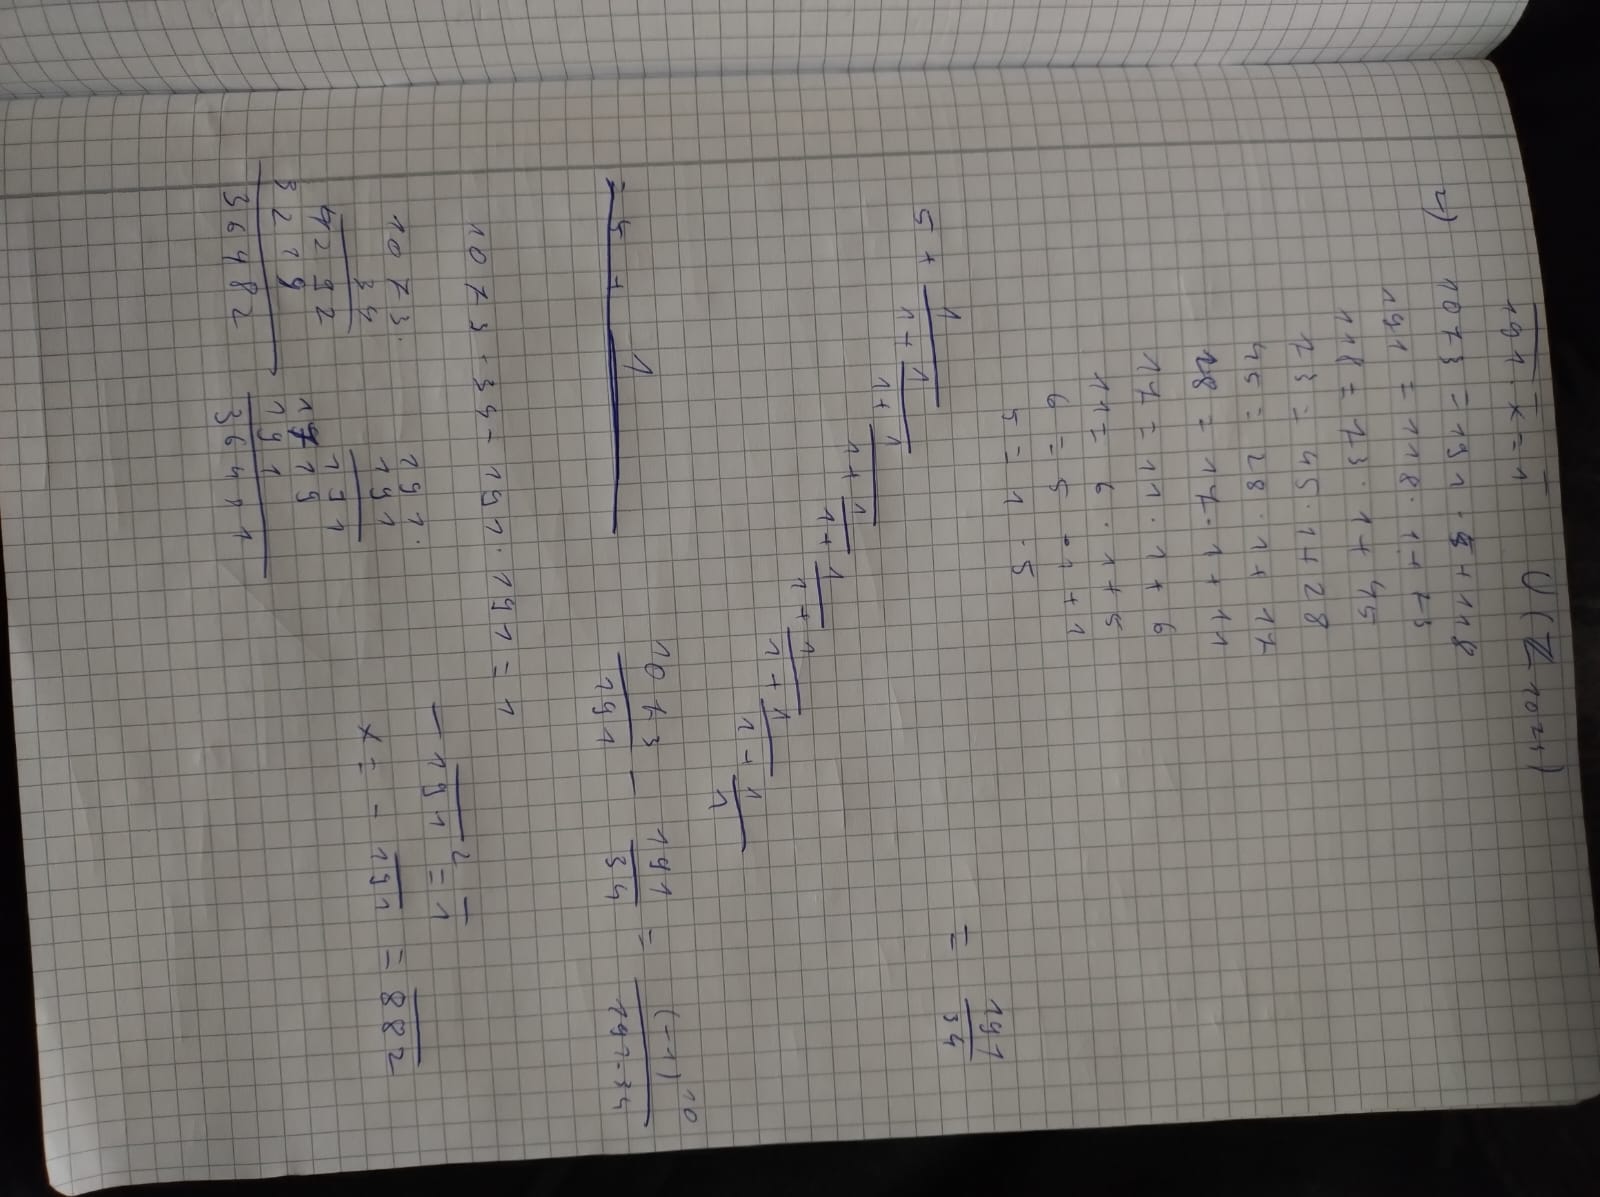 191 · x = 1 U(Z 1073)
2) 1073 = 191 · 5 + 118
191 = 118 · 1 + 73
118 = 73 · 1 + 45
73 = 45 · 1 + 28
45 = 28 · 1 + 17
28 = 17 · 1 + 11
17 = 11 · 1 + 6
11 = 6 · 1 + 5
6 = 5 · 1 + 1
5 = 1 · 5
5 + 1/(1 + 1/(1 + 1/(1 + 1/(1 + 1/(1 + 1/(1 + 1/(1 + 1/1))))))) = 191/34
= 5 + 1
1073/191 - 191/34 = (-1)^10/(191·34)
1073 · 34 - 191 · 191 = 1
- 191² = 1
x = - 191 = 882
1073 ·
34
4292
3219
36482
191 ·
191
191
1719
191
36481